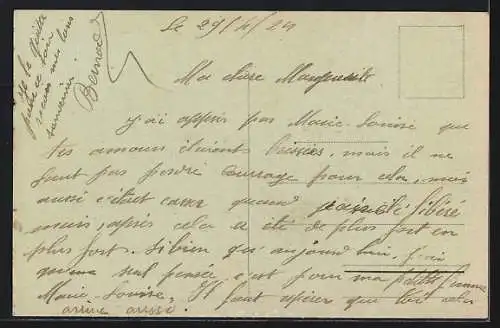 Le 29/4/24
Ma chère Marguerite
J'ai appris par Marie-Louise que
tes amours étaient brisées, mais il ne
faut pas perdre courage pour cela, moi
aussi c'était cassé quand
mais, après cela a été de plus fort en
plus fort. Si bien qu'aujourd'hui,
même seul pensée, c'est pour ma petite femme
Marie-Louise, Il faut espérer que toi cela
arrive aussi.
Je te
ce soir
mes bons
souvenirs
Bernard